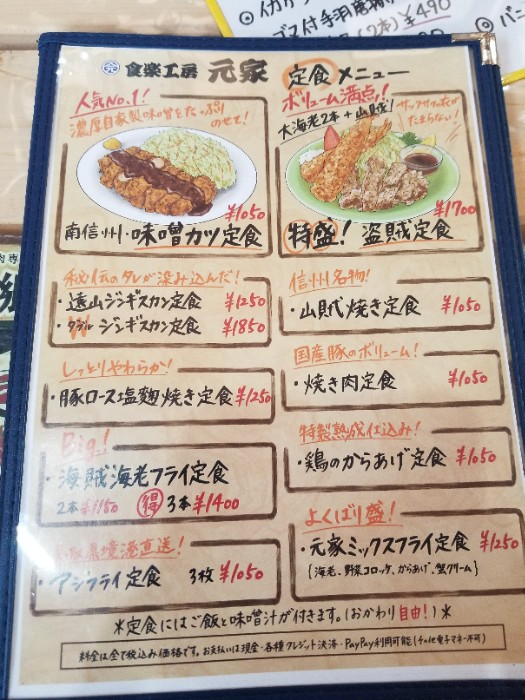 ゴマ付手羽唐揚
(2本)¥490
食楽工房 元家 定食メニュー
人気No.1!
濃厚自家製味噌をたっぷり
のせて!
¥1050
南信州・味噌カツ定食
ボリューム満点!
大海老2本+山賊!
サックサクの衣が
たまらない!
¥1700
特盛! 盗賊定食
秘伝のタレが染み込んだ!
・遠山ジンギスカン定食 ¥1250
・ダブルジンギスカン定食 ¥1850
信州名物!
・山賊焼き定食 ¥1050
しっとりやわらか!
・豚ロース塩麹焼き定食 ¥1250
国産豚のボリューム!
・焼き肉定食 ¥1050
Big!
・海賊海老フライ定食
2本 ¥1150 得 3本 ¥1400
特製熟成仕込み!
・鶏のからあげ定食 ¥1050
県境港直送!
・アジフライ定食 3枚 ¥1050
よくばり盛!
・元家ミックスフライ定食 ¥1250
{海老、野菜コロッケ、からあげ、蟹クリーム}
*定食にはご飯と味噌汁が付きます。(おかわり自由!)*
料金は全て税込み価格です。お支払いは現金・各種クレジット決済・PayPay利用可能(その他電子マネー不可)